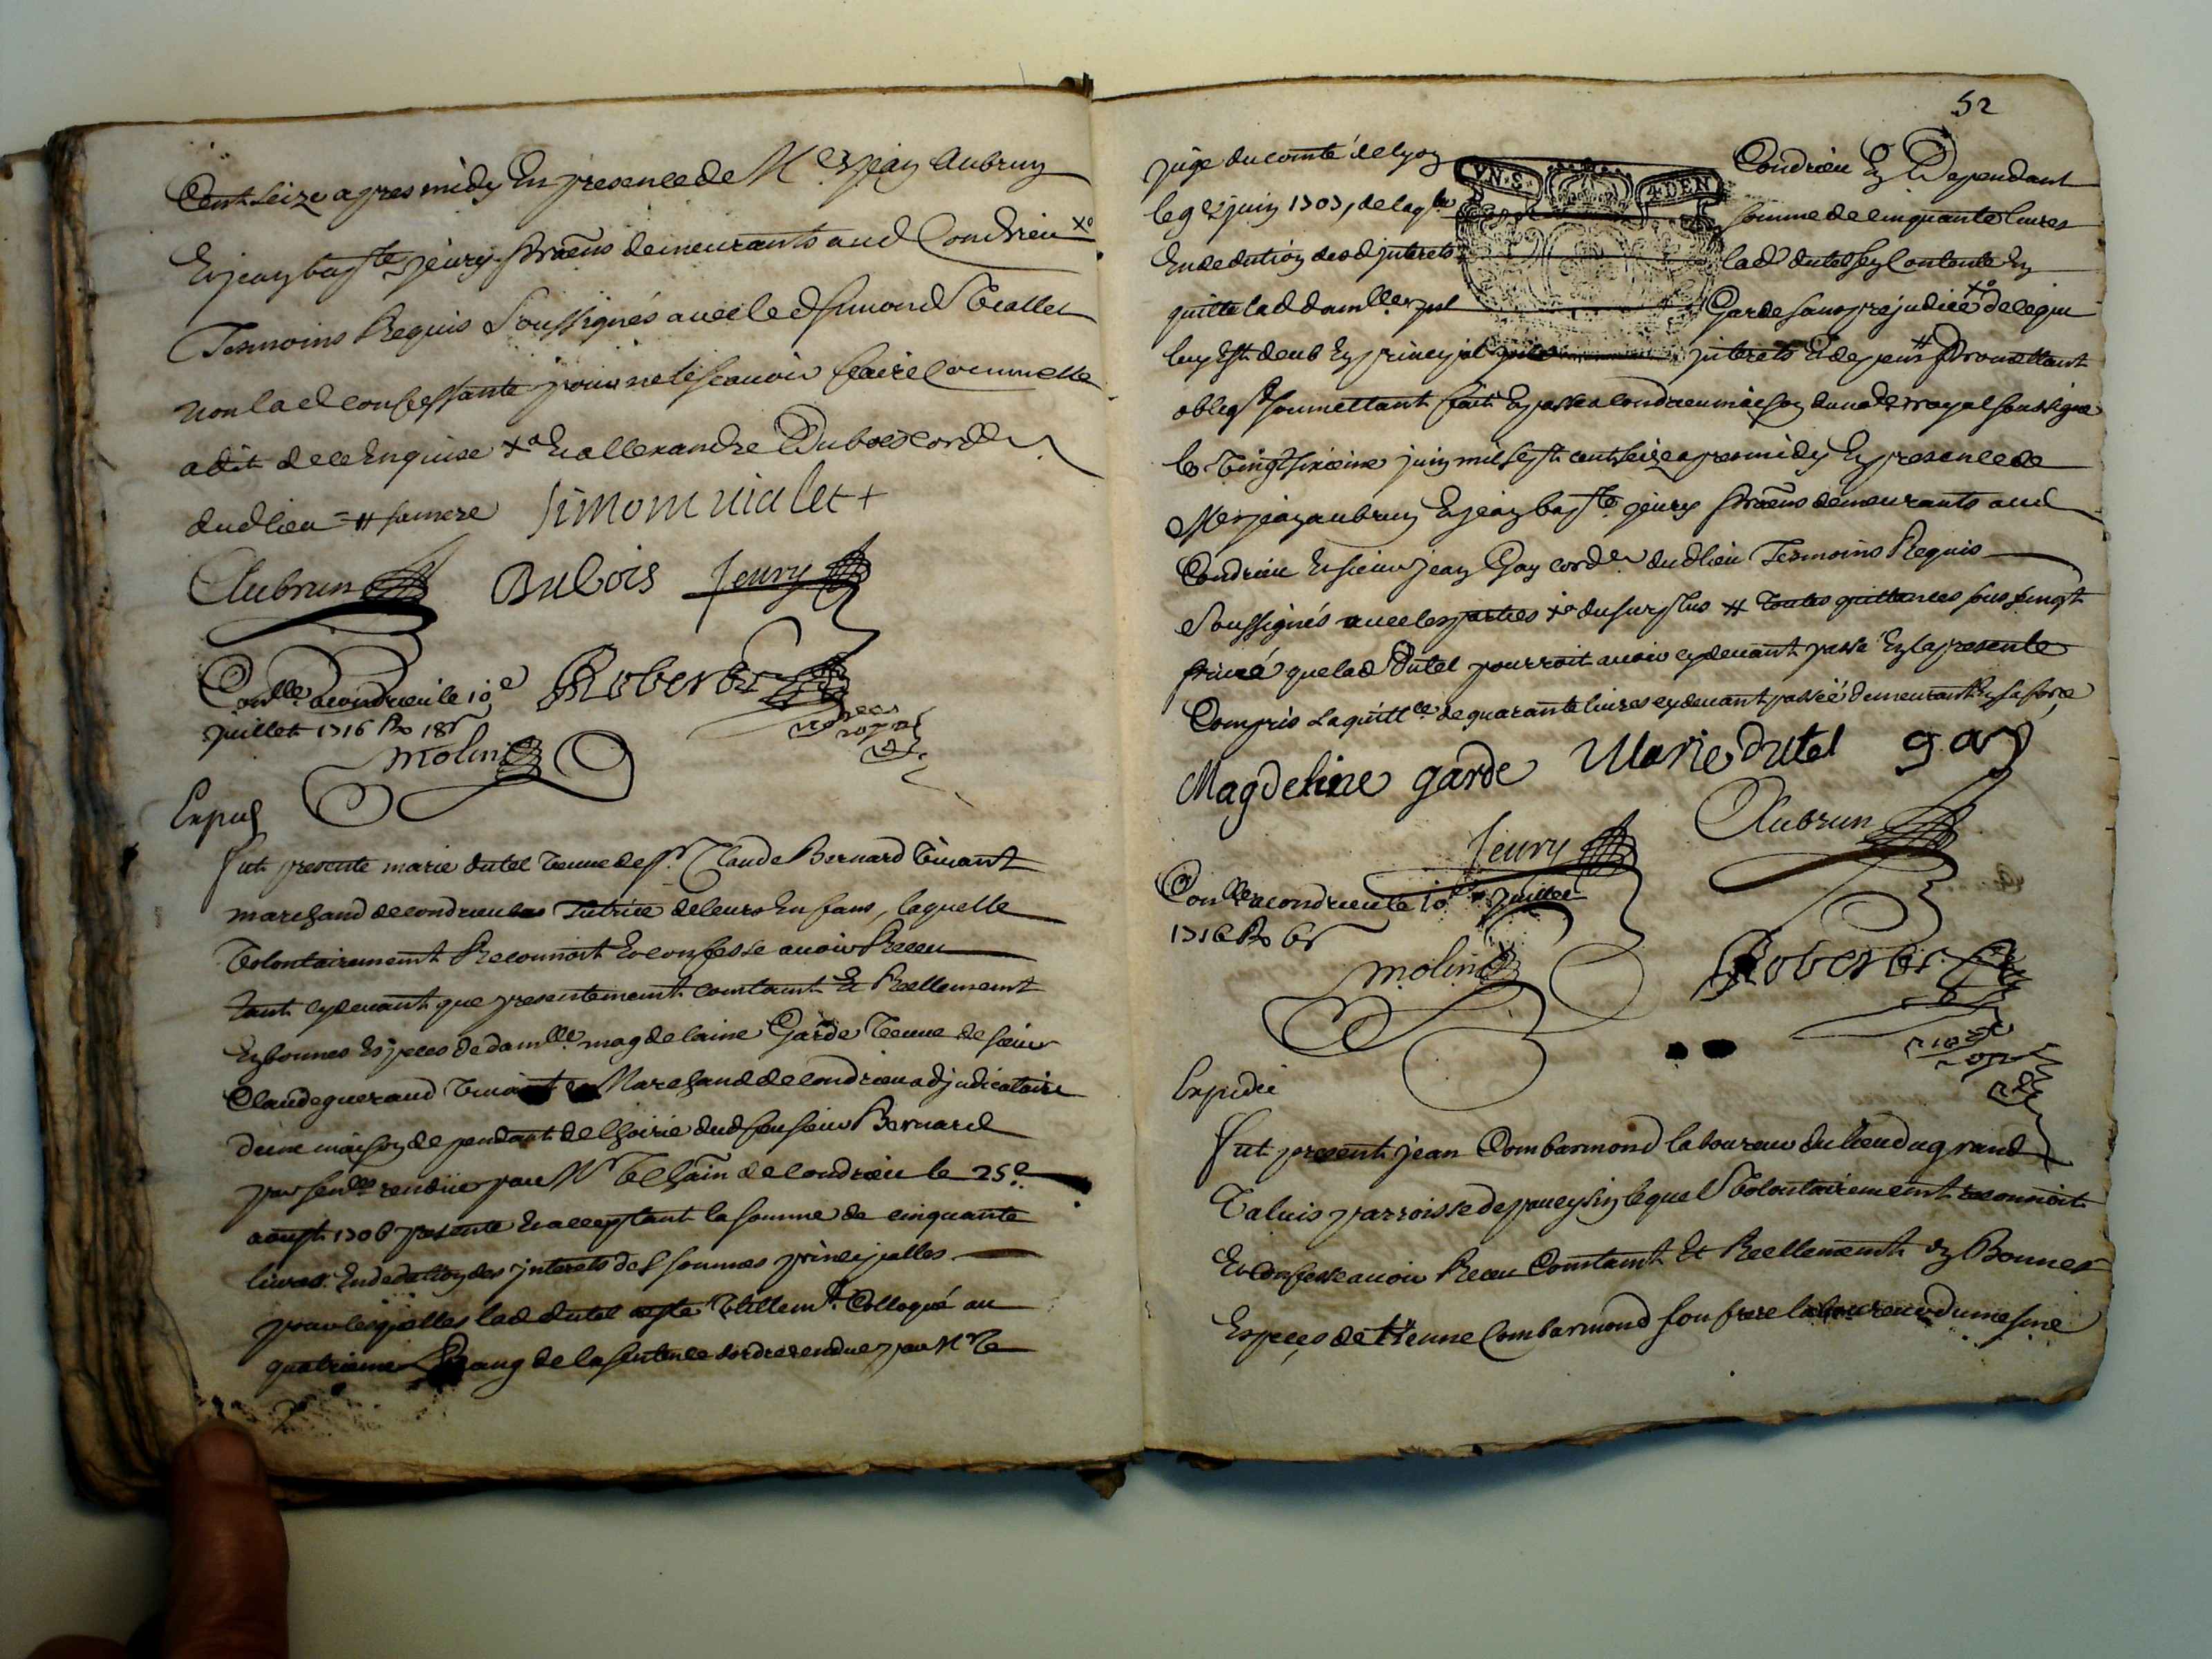 Cent seize apres midy En presence de Me jean Aubrun
Et jean bapte jeury pratiens demeurants aud Condrieu xo
Tesmoins Requis Soussignés avec led simond Viallet
non lad confessante pour ne le scavoir faire comme elle
a dit de ce Enquise xo Et allexandre Dubois cordr
dud lieu = # sa mere simom vialet +
Aubrun DuBois Jeury
Conlle a condrieu le 10e Roberts
juillet 1716 Ro 18s
molin
Expud
Fut presente marie dutel veuve de Sr. Claude Bernard vivant
marchand de condrieu Tutrice de leurs Enfans, laquelle
volontairement Reconnoit Et confesse avoir Receu
tant cydevant que presentement comtamt Et Reellement
En bonnes Especes de damlle magdelaine Garde veuve de sieur
Claude gueraud vivant Marchand de condrieu adjudicataire
d'une maison dependant de l'hoirie dud feu sieur Bernard
par senlle rendue par Mr le Chain de condrieu le 25e
aoust 1706 presente Et acceptant la somme de cinquante
livres Endedution des jnterets des sommes principalles
pour lesquelles lad dutel este utillemt Colloqué au
quatrieme Rang de la sentence dordre rendue par Mr le
52
juge du comté de lyon Condrieu En Dependant
le 9e juin 1703, de laqlle somme de cinquante livres
En dedution desd jnterets lad dutel sen Contente En
quitte lad damlle Garde sans prejudice xo de ce qui
luy Est deub En principal jnterets Et depens # Promettant
obligt soumettant fait En passé a condrieu maison du node royal soussigné
le vingt sixieme juin mil sept cent seize apres midy En presence de
Me jean aubrun Et jean bapte jeury pratiens demeurants aud
Condrieu Et sieur jean Gay cordr dud lieu Tesmoins Requis
Soussignés avec les parties xo du surplus # toutes quittances sous seingt
privé que lad Dutel pourroit avoir cydevant passé En la presente
Compris la quittce de quarante livres cydevant passéé demeurant En sa force
Magdeleine garde Marie dutel gay
Jeury Aubrun
Conlle a condrieu le 10e juillet
1716 Ro 6s
molin Roberts
Expedié
Fut present jean Combarmond laboureur du lieu du grand
Taluis parroisse de poueysin lequel volontairement reconnoit
Et Confesse avoir Receu Comtamt Et Reellement En Bonnes
Especes de tienne Combarmond son frere laboureur du mesme